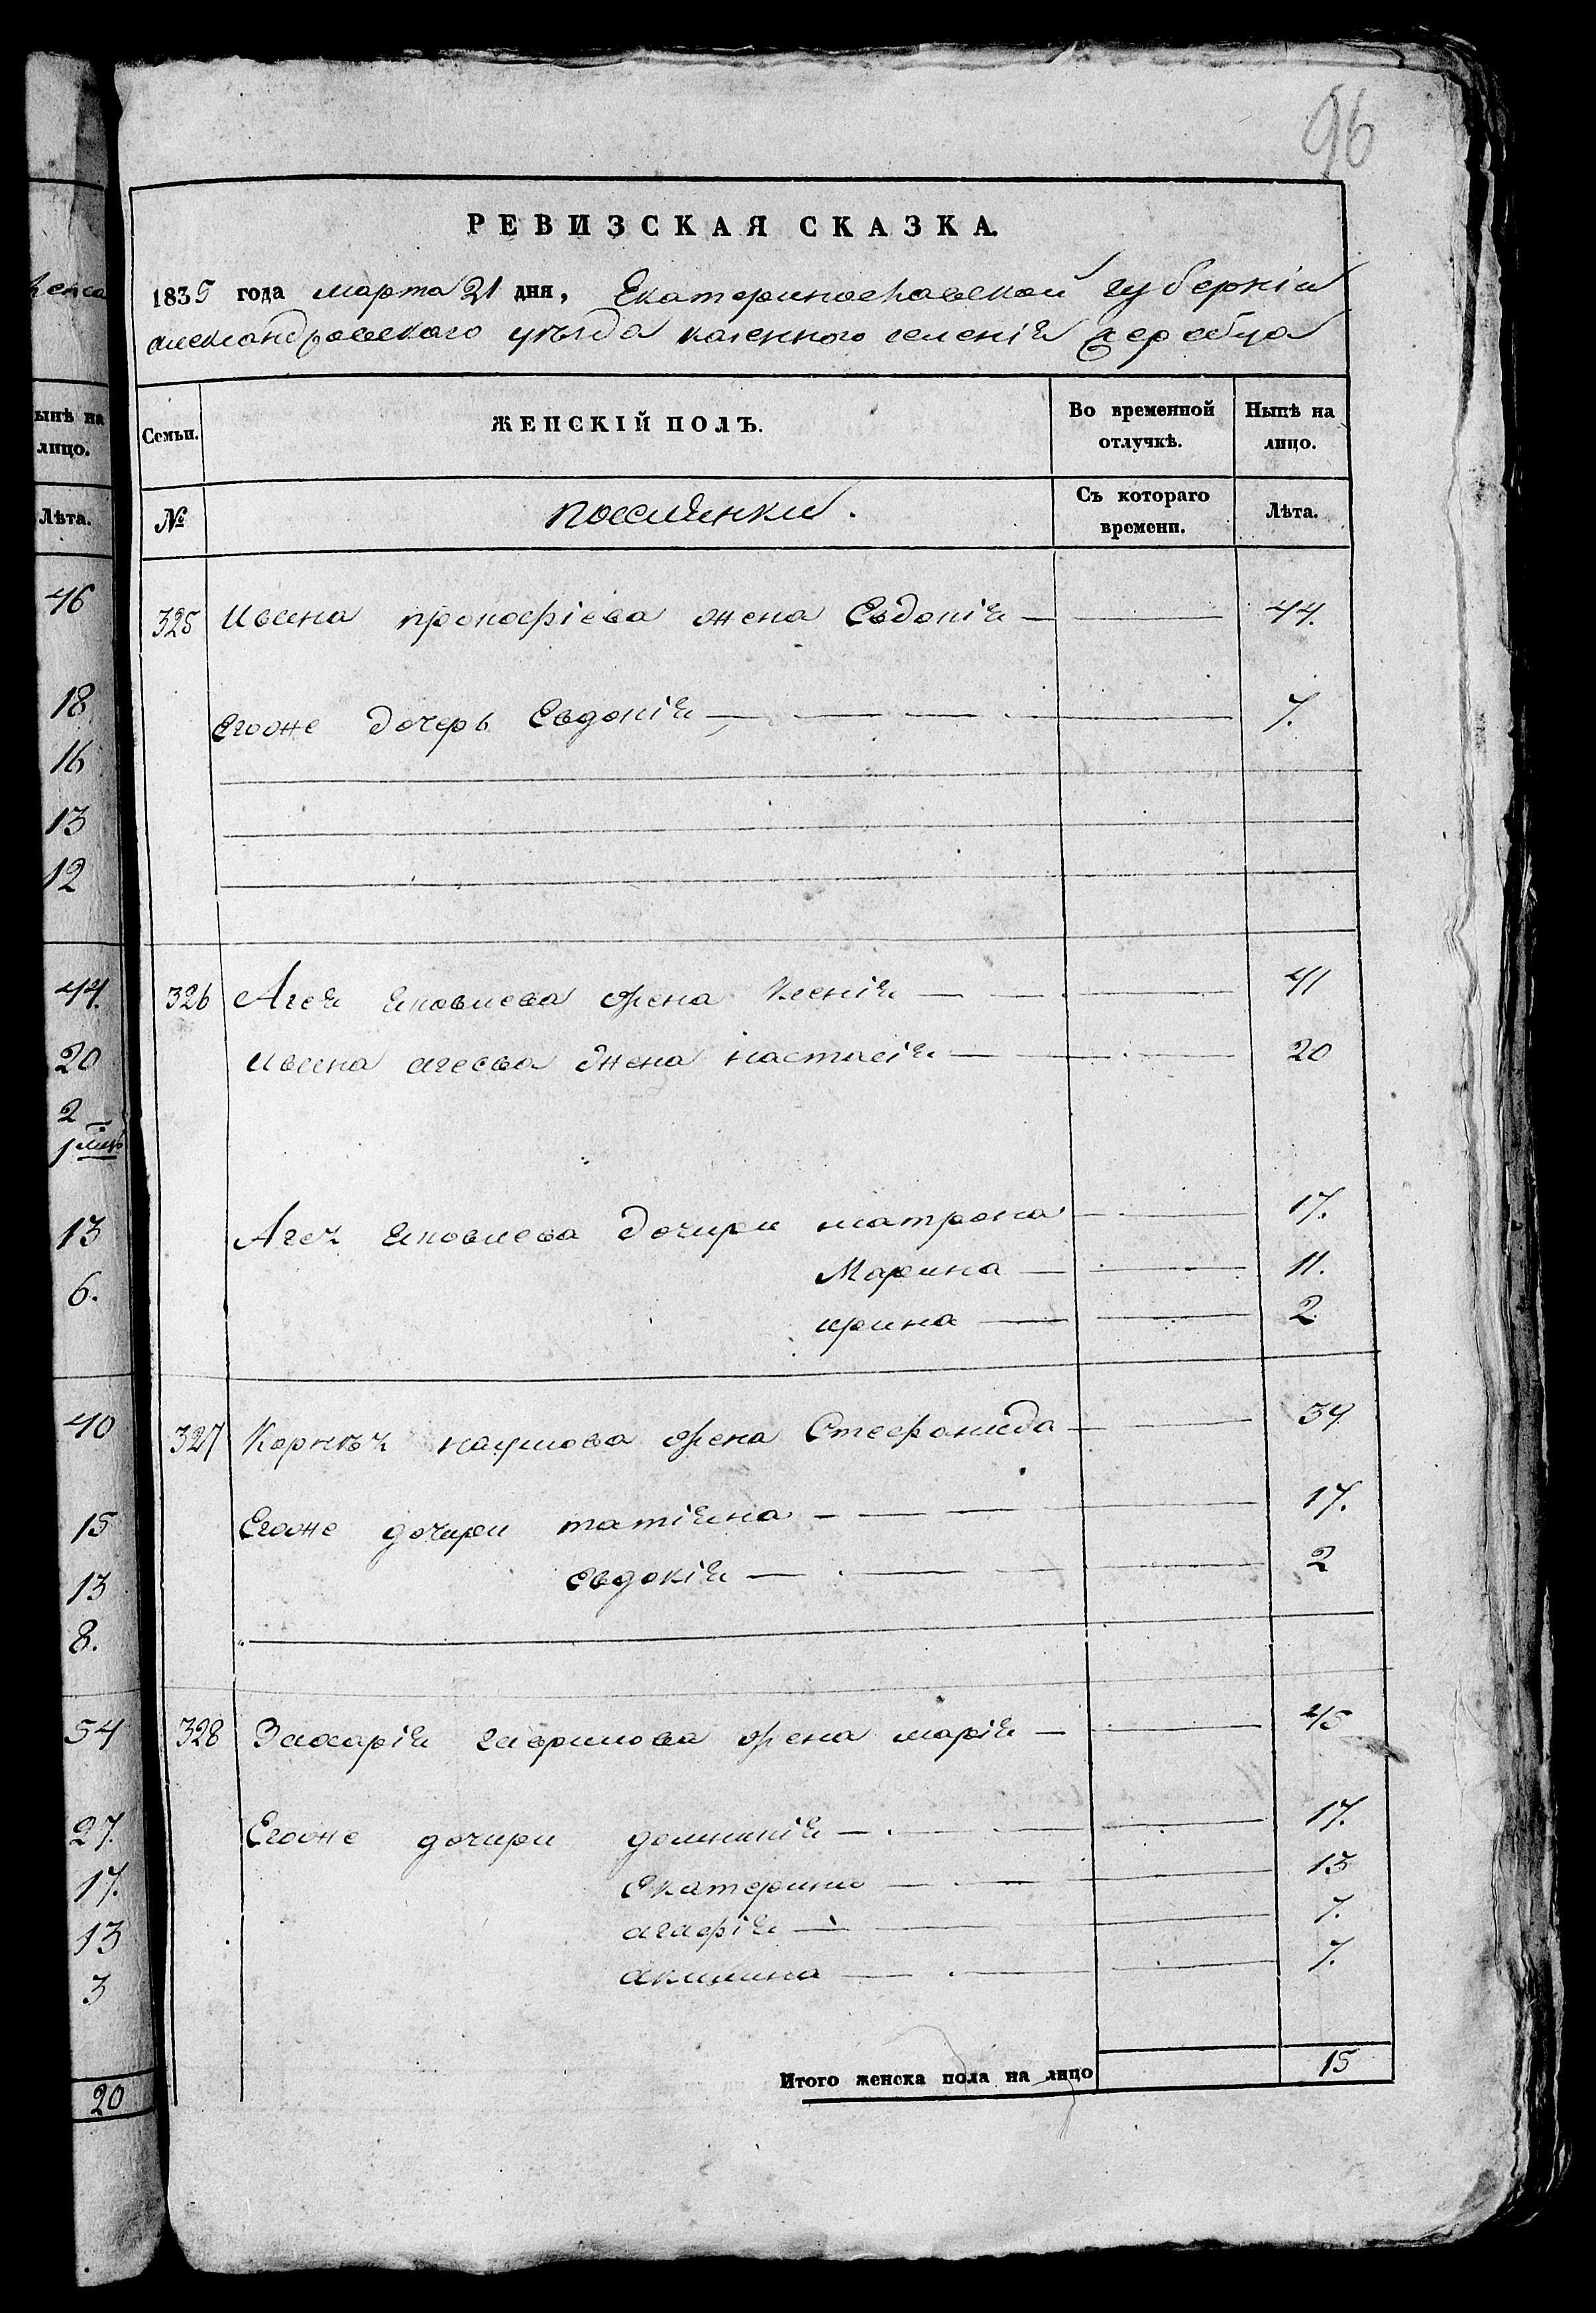 96
РЕВИЗСКАЯ СКАЗКА.
1835 года марта 21 дня, Екатеринославской губерніи
александровского уѣзда казенного селенія Жеребца
Семьи.
ЖЕНСКІЙ ПОЛЪ.
Во временной отлучкѣ.
Нынѣ на лицо.
№
поселянки.
Съ котораго времени.
Лѣта.
325 Ивана прокофіева жена Евдокія — 44.
Егоже дочерь Евдокія — 7.
326 Агея яковлева жена Ксенія — 41
Ивана агеева жена настасія — 20
Агея яковлева дочири матрона — 17.
Марина — 11.
ирина — 2
327 Корнѣя наумова жена Стефанида — 39
Егоже дочири татіяна — 17.
евдокія — 2
328 Захарія гаврилова жена марія — 45
Егоже дочири домникія — 17.
Екатерина — 13
агафія — 7.
акилина — 7.
Итого женска пола на лицо 15
ынѣ на
лицо.
Лѣта.
46
18
16
13
12
44.
20
2
13
6.
40
15
13
8.
54
27.
17.
13
3
20